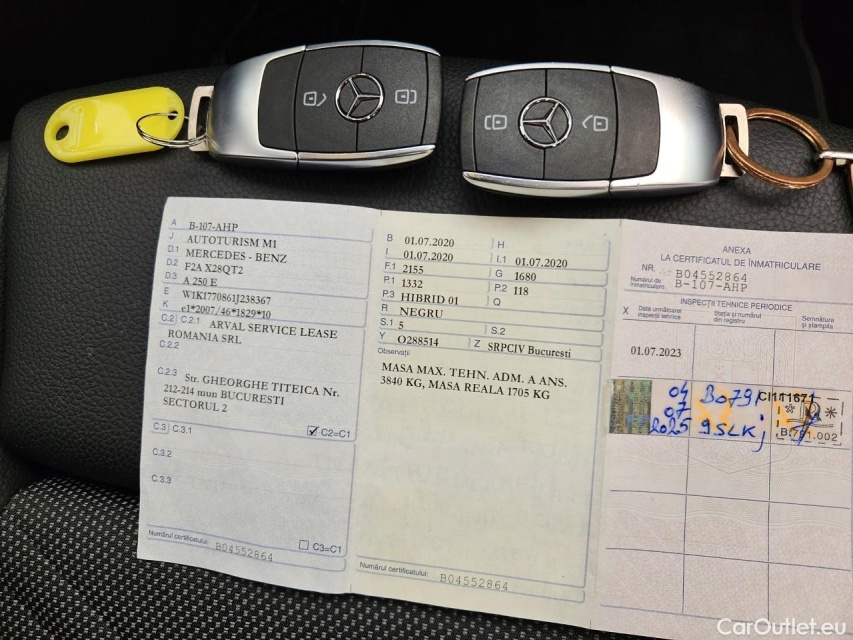 A B-107-AHP
J AUTOTURISM M1
D.1 MERCEDES - BENZ
D.2 F2A X28QT2
D.3 A 250 E
E W1K1770861J238367
K e1*2007/46*1829*10
C.2 C.2.1 ARVAL SERVICE LEASE
ROMANIA SRL
C.2.2
C.2.3 Str. GHEORGHE TITEICA Nr.
212-214 mun BUCURESTI
SECTORUL 2
C2=C1
C.3 C.3.1
C.3.2
C.3.3
C3=C1
Numărul certificatului: B04552864
B 01.07.2020 H
I 01.07.2020 I.1 01.07.2020
F.1 2155 G 1680
P.1 1332 P.2 118
P.3 HIBRID 01 Q
R NEGRU
S.1 5 S.2
Y O288514 Z SRPCIV Bucuresti
Observații
MASA MAX. TEHN. ADM. A ANS.
3840 KG, MASA REALA 1705 KG
Numărul certificatului: B04552864
ANEXA
LA CERTIFICATUL DE ÎNMATRICULARE
NR. B04552864
Numărul de înmatriculare B-107-AHP
INSPECȚII TEHNICE PERIODICE
X Data următoarei inspecții tehnice Stația și numărul din registru Semnătura și ștampila
01.07.2023
04 B079
07
2025 9SLKj
CI111671
B 791.002
CarOutlet.eu